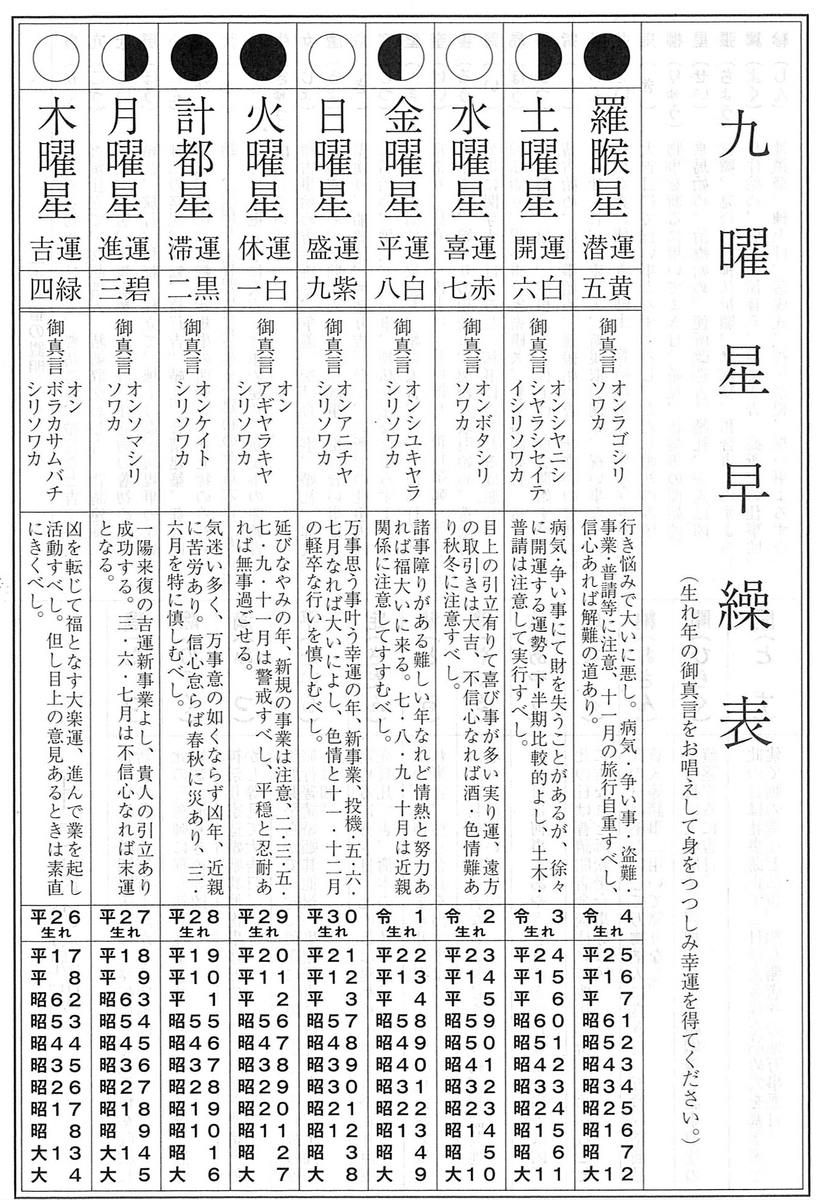 九曜星早繰表
(生れ年の御真言をお唱えして身をつつしみ幸運を得てください。)
羅睺星
潜運
五黄
御真言
オンラゴシリ
ソワカ
行き悩みで大いに悪し。病気・争い事・盗難・
事業・普請等に注意、十一月の旅行自重すべし、
信心あれば解難の道あり。
令4
生れ
平25
平16
平7
昭61
昭52
昭43
昭34
昭25
昭16
昭7
大12
土曜星
開運
六白
御真言
オンシヤニシ
シヤラシセイテ
イシリソワカ
病気・争い事にて財を失うことがあるが、徐々
に開運する運勢、下半期比較的よし、土木
普請は注意して実行すべし。
令3
生れ
平24
平15
平6
昭60
昭51
昭42
昭33
昭24
昭15
昭6
大11
水曜星
喜運
七赤
御真言
オンボタシリ
ソワカ
目上の引立有りて喜び事が多い実り運、遠方
の取引きは大吉、不信心なれば酒・色情難あ
り秋冬に注意すべし。
令2
生れ
平23
平14
平5
昭59
昭50
昭41
昭32
昭23
昭14
昭5
大10
金曜星
平運
八白
御真言
オンシユキヤラ
シリソワカ
諸事障りがある難しい年なれど情熱と努力あ
れば福大いに来る。七・八・九・十月は近親
関係に注意してすすむべし。
令1
生れ
平22
平13
平4
昭58
昭49
昭40
昭31
昭22
昭13
昭4
大9
日曜星
盛運
九紫
御真言
オンアニチヤ
シリソワカ
万事思う事叶う幸運の年、新事業、投機・五・六・
七月なれば大いによし、色情と十一・十二月
の軽卒な行いを慎しむべし。
平30
生れ
平21
平12
平3
昭57
昭48
昭39
昭30
昭21
昭12
昭3
大8
火曜星
休運
一白
御真言
オン
アギヤラキヤ
シリソワカ
延びなやみの年、新規の事業は注意、二・三・五・
七・九・十一月は警戒すべし、平穏と忍耐あ
れば無事過ごせる。
平29
生れ
平20
平11
平2
昭56
昭47
昭38
昭29
昭20
昭11
昭2
大7
計都星
滞運
二黒
御真言
オンケイト
シリソワカ
気迷い多く、万事意の如くならず凶年、近親
に苦労あり。信心怠らば春秋に災あり、三・
六月を特に慎しむべし。
平28
生れ
平19
平10
平1
昭55
昭46
昭37
昭28
昭19
昭10
昭1
大6
月曜星
進運
三碧
御真言
オンソマシリ
ソワカ
一陽来復の吉運新事業よし、貴人の引立あり
成功する。三・六・七月は不信心なれば末運
となる。
平27
生れ
平18
平9
昭63
昭54
昭45
昭36
昭27
昭18
昭9
大14
大5
木曜星
吉運
四緑
御真言
オン
ボラカサムバチ
シリソワカ
凶を転じて福となす大楽運、進んで業を起し
活動すべし。但し目上の意見あるときは素直
にきくべし。
平26
生れ
平17
平8
昭62
昭53
昭44
昭35
昭26
昭17
昭8
大13
大4